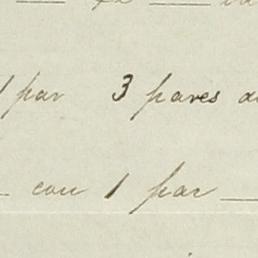 1 par 3 pares
con 1 par